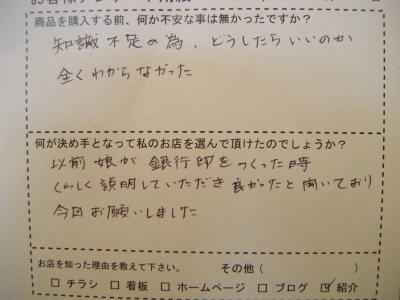 商品を購入する前、何か不安な事は無かったですか？
知識不足の為、どうしたらいいのか
全くわからなかった
何が決め手となって私のお店を選んで頂けたのでしょうか？
以前娘が銀行印をつくった時
くわしく説明していただき良かったと聞いており
今回お願いしました
お店を知った理由を教えて下さい。 その他（
□ チラシ □ 看板 □ ホームページ □ ブログ ☑ 紹介